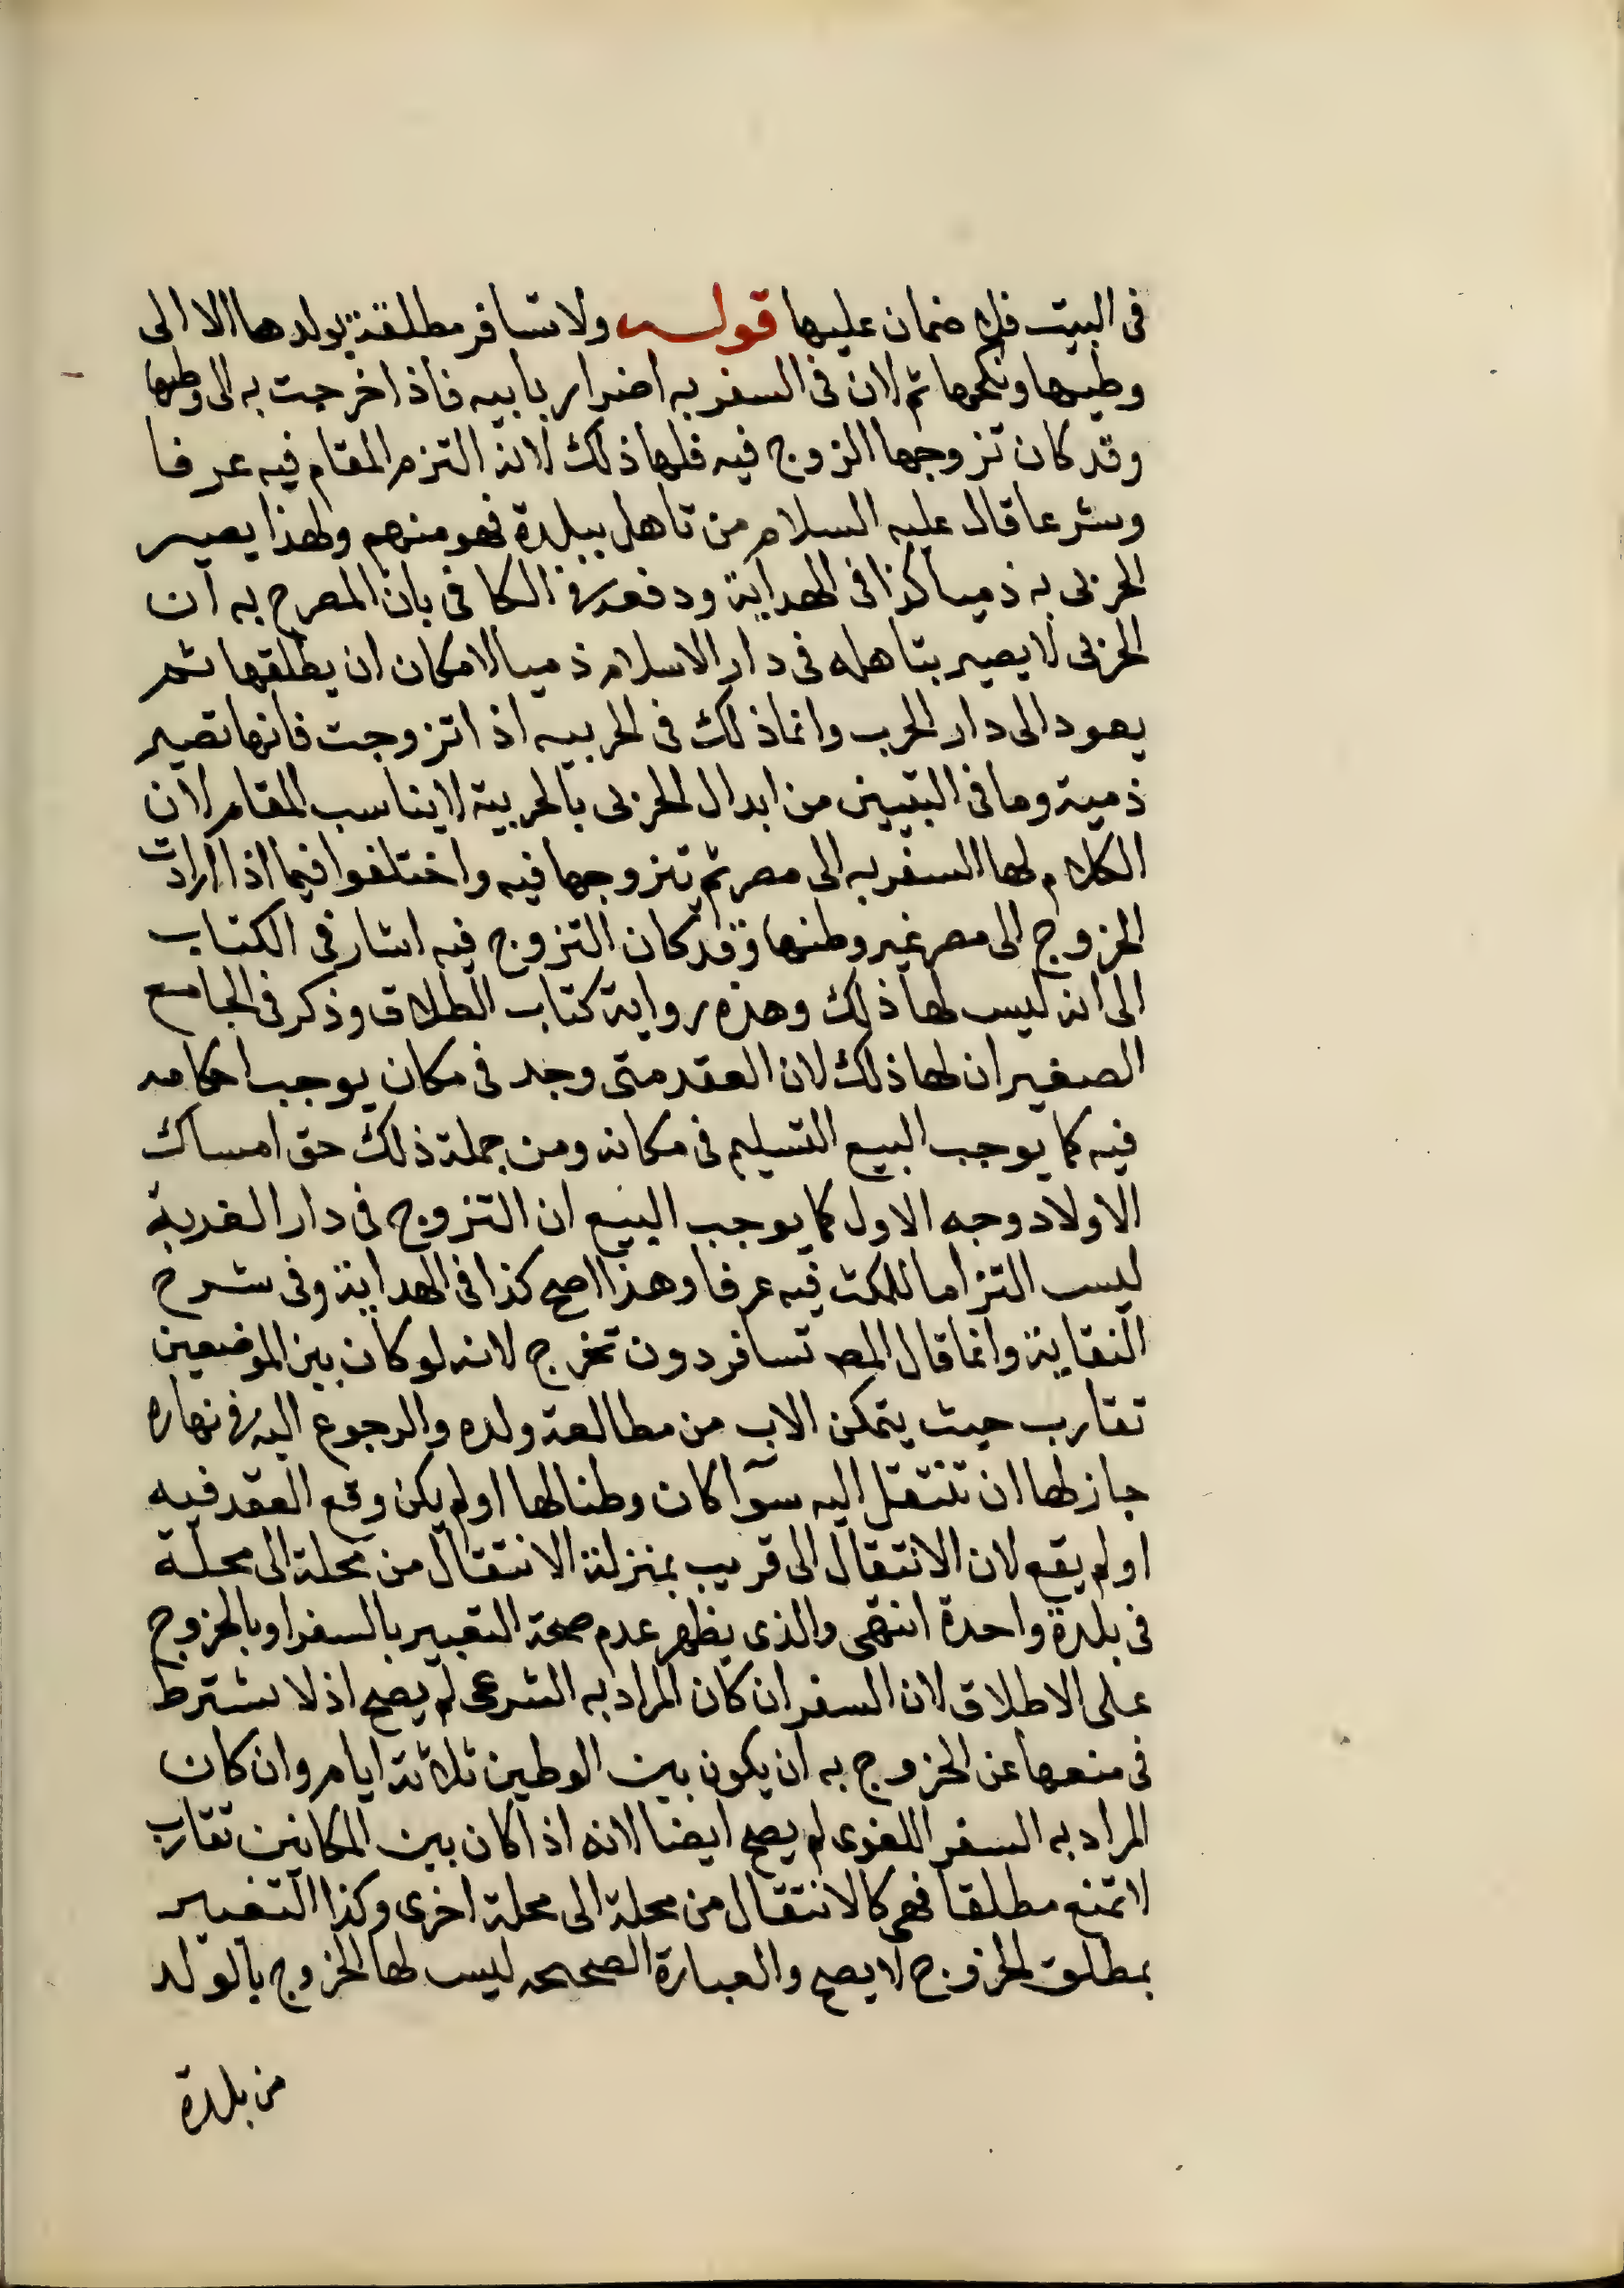 فى البيت فلا ضمان عليها قوله ولا تسافر مطلقة بولدها الا الى
وطنها ونكحها ثم لان فى السفر به اضرار بابيه فاذا خرجت به الى وطنها
وقد كان تزوجها الزوج فيه فلها ذلك لانه التزم المقام فيه عرفا
وشرعا قال عليه السلام من تاهل ببلدة فهو منهم ولهذا يصير
الحربى به ذميا كذا فى الهداية ودفعه فى الكافى بان المصرح به ان
الحربى لا يصير بتاهله فى دار الاسلام ذميا لامكان ان يطلقها ثم
يعود الى دار الحرب وانما ذلك فى الحربيه اذا تزوجت فانها تصير
ذمية وما فى التبيين من ابدال الحربى بالحربية لا يناسب المقام لان
الكلام لها السفر به الى مصر ثم تزوجها فيه واختلفوا فيما اذا ارادت
الخروج الى مصر غير وطنها وقد كان التزوج فيه اشار فى الكتاب
الى انه ليس لها ذلك وهذه رواية كتاب الطلاق وذكر فى الجامع
الصغير ان لها ذلك لان العقد متى وجد فى مكان يوجب احكامه
فيه كما يوجب البيع التسليم فى مكانه ومن جملة ذلك حق امساك
الاولاد وجه الاول كما يوجب البيع ان التزوج فى دار الغربة
ليس التزاما للمكث فيه عرفا وهذا اصح كذا فى الهداية وفى شرح
النقاية وانما قال المص تسافر دون تخرج لانه لو كان بين الموضعين
تقارب حيث يتمكن الاب من مطالعة ولده والرجوع اليه فى نهاره
جاز لها ان تنتقل اليه سوآ كان وطنا لها او لم يكن وقع العقد فيه
او لم يقع لان الانتقال الى قريب بمنزلة الانتقال من محلة الى محلة
فى بلدة واحدة انتهى والذى يظهر عدم صحة التعبير بالسفر او بالخروج
على الاطلاق لان السفر ان كان المراد به الشرعى لم يصح اذ لا يشترط
فى منعها عن الخروج به ان يكون بين الوطين ثلاثة ايام وان كان
المراد به السفر اللغوى لم يصح ايضا لانه اذا كان بين المكانين تقارب
لا تمنع مطلقا فهى كالانتقال من محلة الى محلة اخرى وكذا التعبير
بمطلق الخروج لا يصح والعبارة الصحيحه ليس لها الخروج بالولد
من بلدة